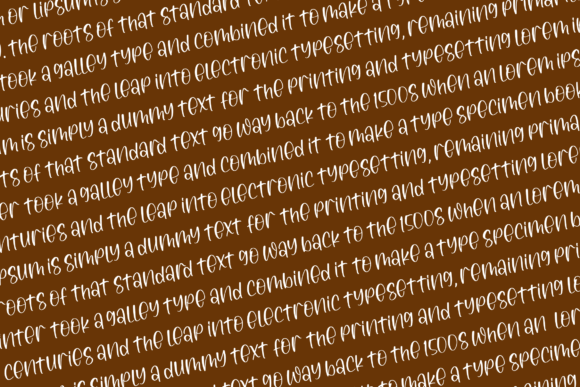 or Lipsum is
the roots of that standard
took a galley type and combined it to make a
and the leap into electronic typesetting, remaining
is simply a dummy text for the printing and typesetting lorem
of that standard text go way back to the 1500s when an lorem ips
took a galley type and combined it to make a type specimen book
nturies and the leap into electronic typesetting, remaining prima
psum is simply a dummy text for the printing and typesetting lore
roots of that standard text go way back to the 1500s when an lorem
inter took a galley type and combined it to make a type specimen b
centuries and the leap into electronic typesetting, remaining pri
is simply a dummy text for the printing and typesetting lo
go way back to the 1500s when an lor
to make a type specime